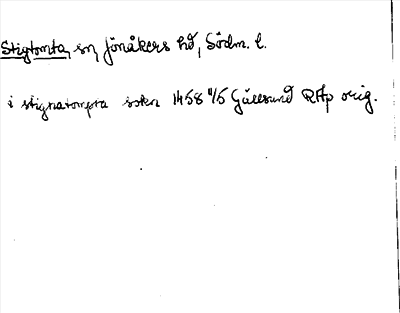 Stigtomta, sn, Jönåkers hd, Södm. l.
i stignatompta sokn 1458 11/5 Gällsund RAp orig.